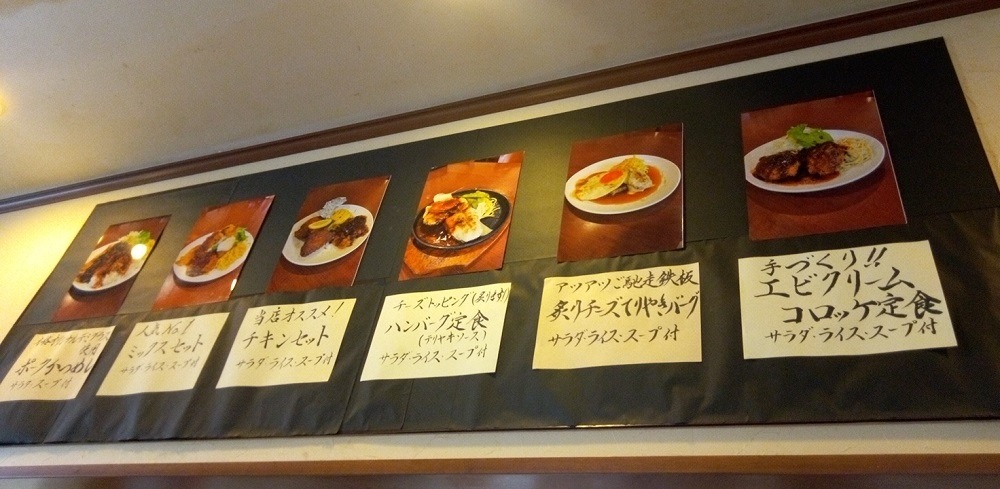 ポークかつめし
サラダ・スープ付
人気No.1
ミックスセット
サラダ・ライス・スープ付
当店オススメ!
チキンセット
サラダ・ライス・スープ付
チーズトッピング(炙ります)
ハンバーグ定食
(テリヤキソース)
サラダ・ライス・スープ付
アツアツご馳走鉄板
炙りチーズてりやきバーグ
サラダ・ライス・スープ付
手づくり!!
エビクリーム
コロッケ定食
サラダ・ライス・スープ付